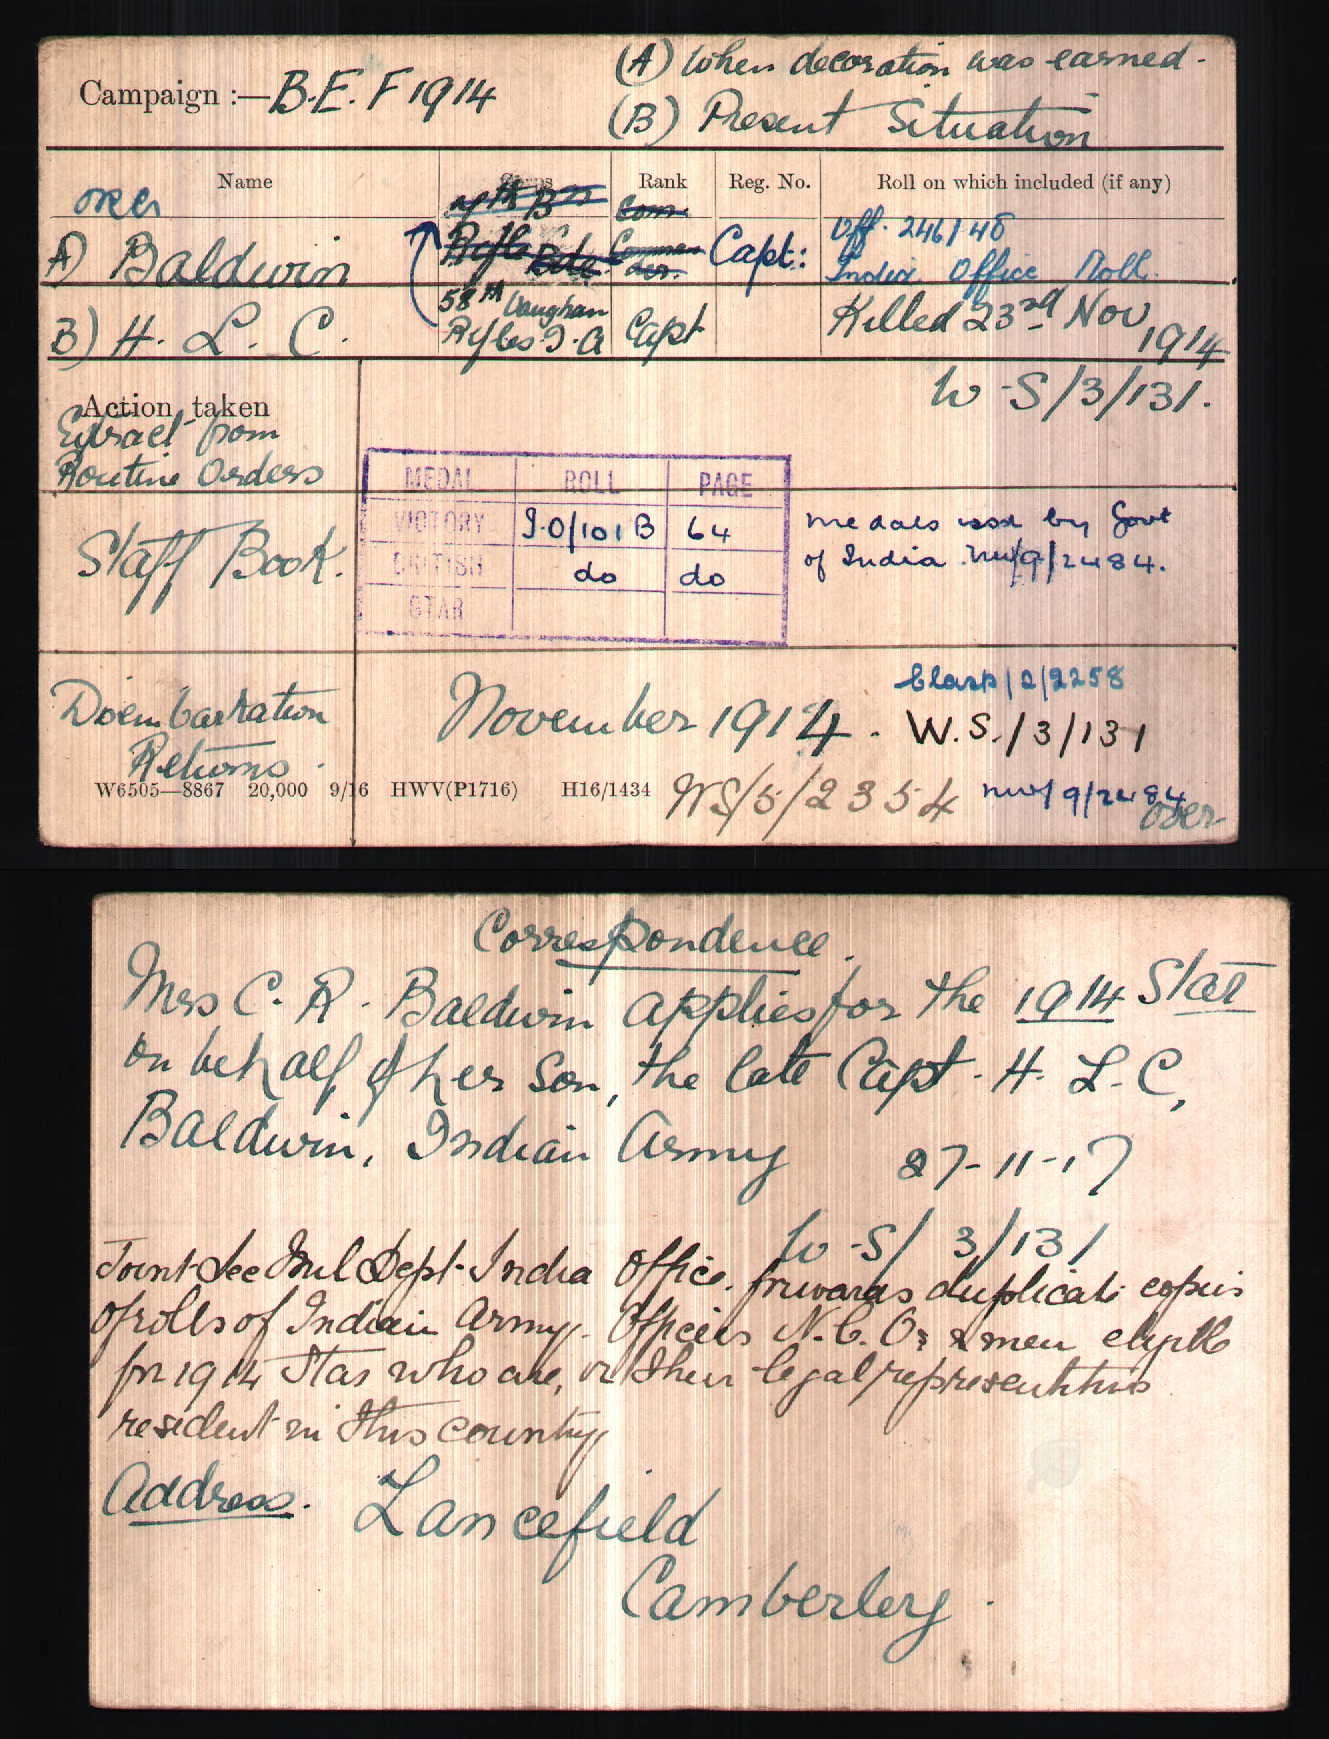 Campaign :— B.E.F 1914
(A) When decoration was earned.
(B) Present Situation
Name Corps Rank Reg. No. Roll on which included (if any)
A) Baldwin Rifle Bde. Capt: Off. 246/46
India Office Roll.
B) H. L. C. 58th Vaughan Rifles I.A Capt Killed 23rd Nov 1914
Action taken W-S/3/131.
Extract from
Routine Orders
MEDAL ROLL PAGE
VICTORY I.O/101 B 64
BRITISH do do
STAR
Staff Book.
medals issd by Govt
of India. nw/9/2484.
Disembarkation
Returns.
November 1914.
Clasp/2/2258
W.S./3/131
W6505—8867 20,000 9/16 HWV(P1716) H16/1434 WS/5/2354 nw/9/2484
over
Correspondence.
Mrs C. R. Baldwin applies for the 1914 Star
on behalf of her son, the late Capt. H. L. C,
Baldwin, Indian Army 27-11-17
W-S/ 3/131
Joint Sec Mil Dept. India Office. forwards duplicate copies
of rolls of Indian Army. Officers N.C.Os & men eligible
for 1914 Star who are, or their legal representatives
resident in this country
Address. Lancefield
Camberley.